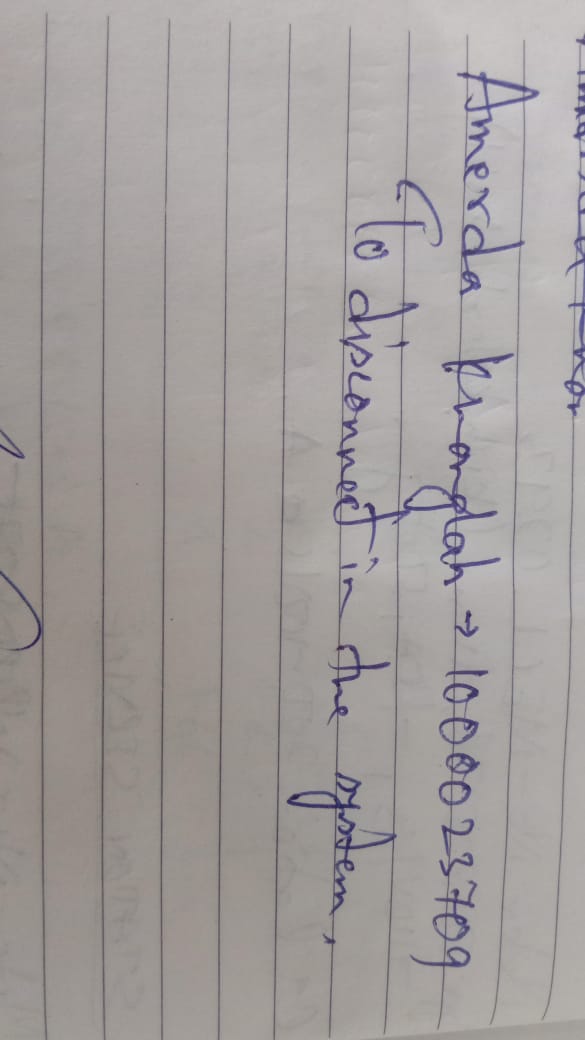 Amerda Kharglah → 10000023709
To disconnect in the system,